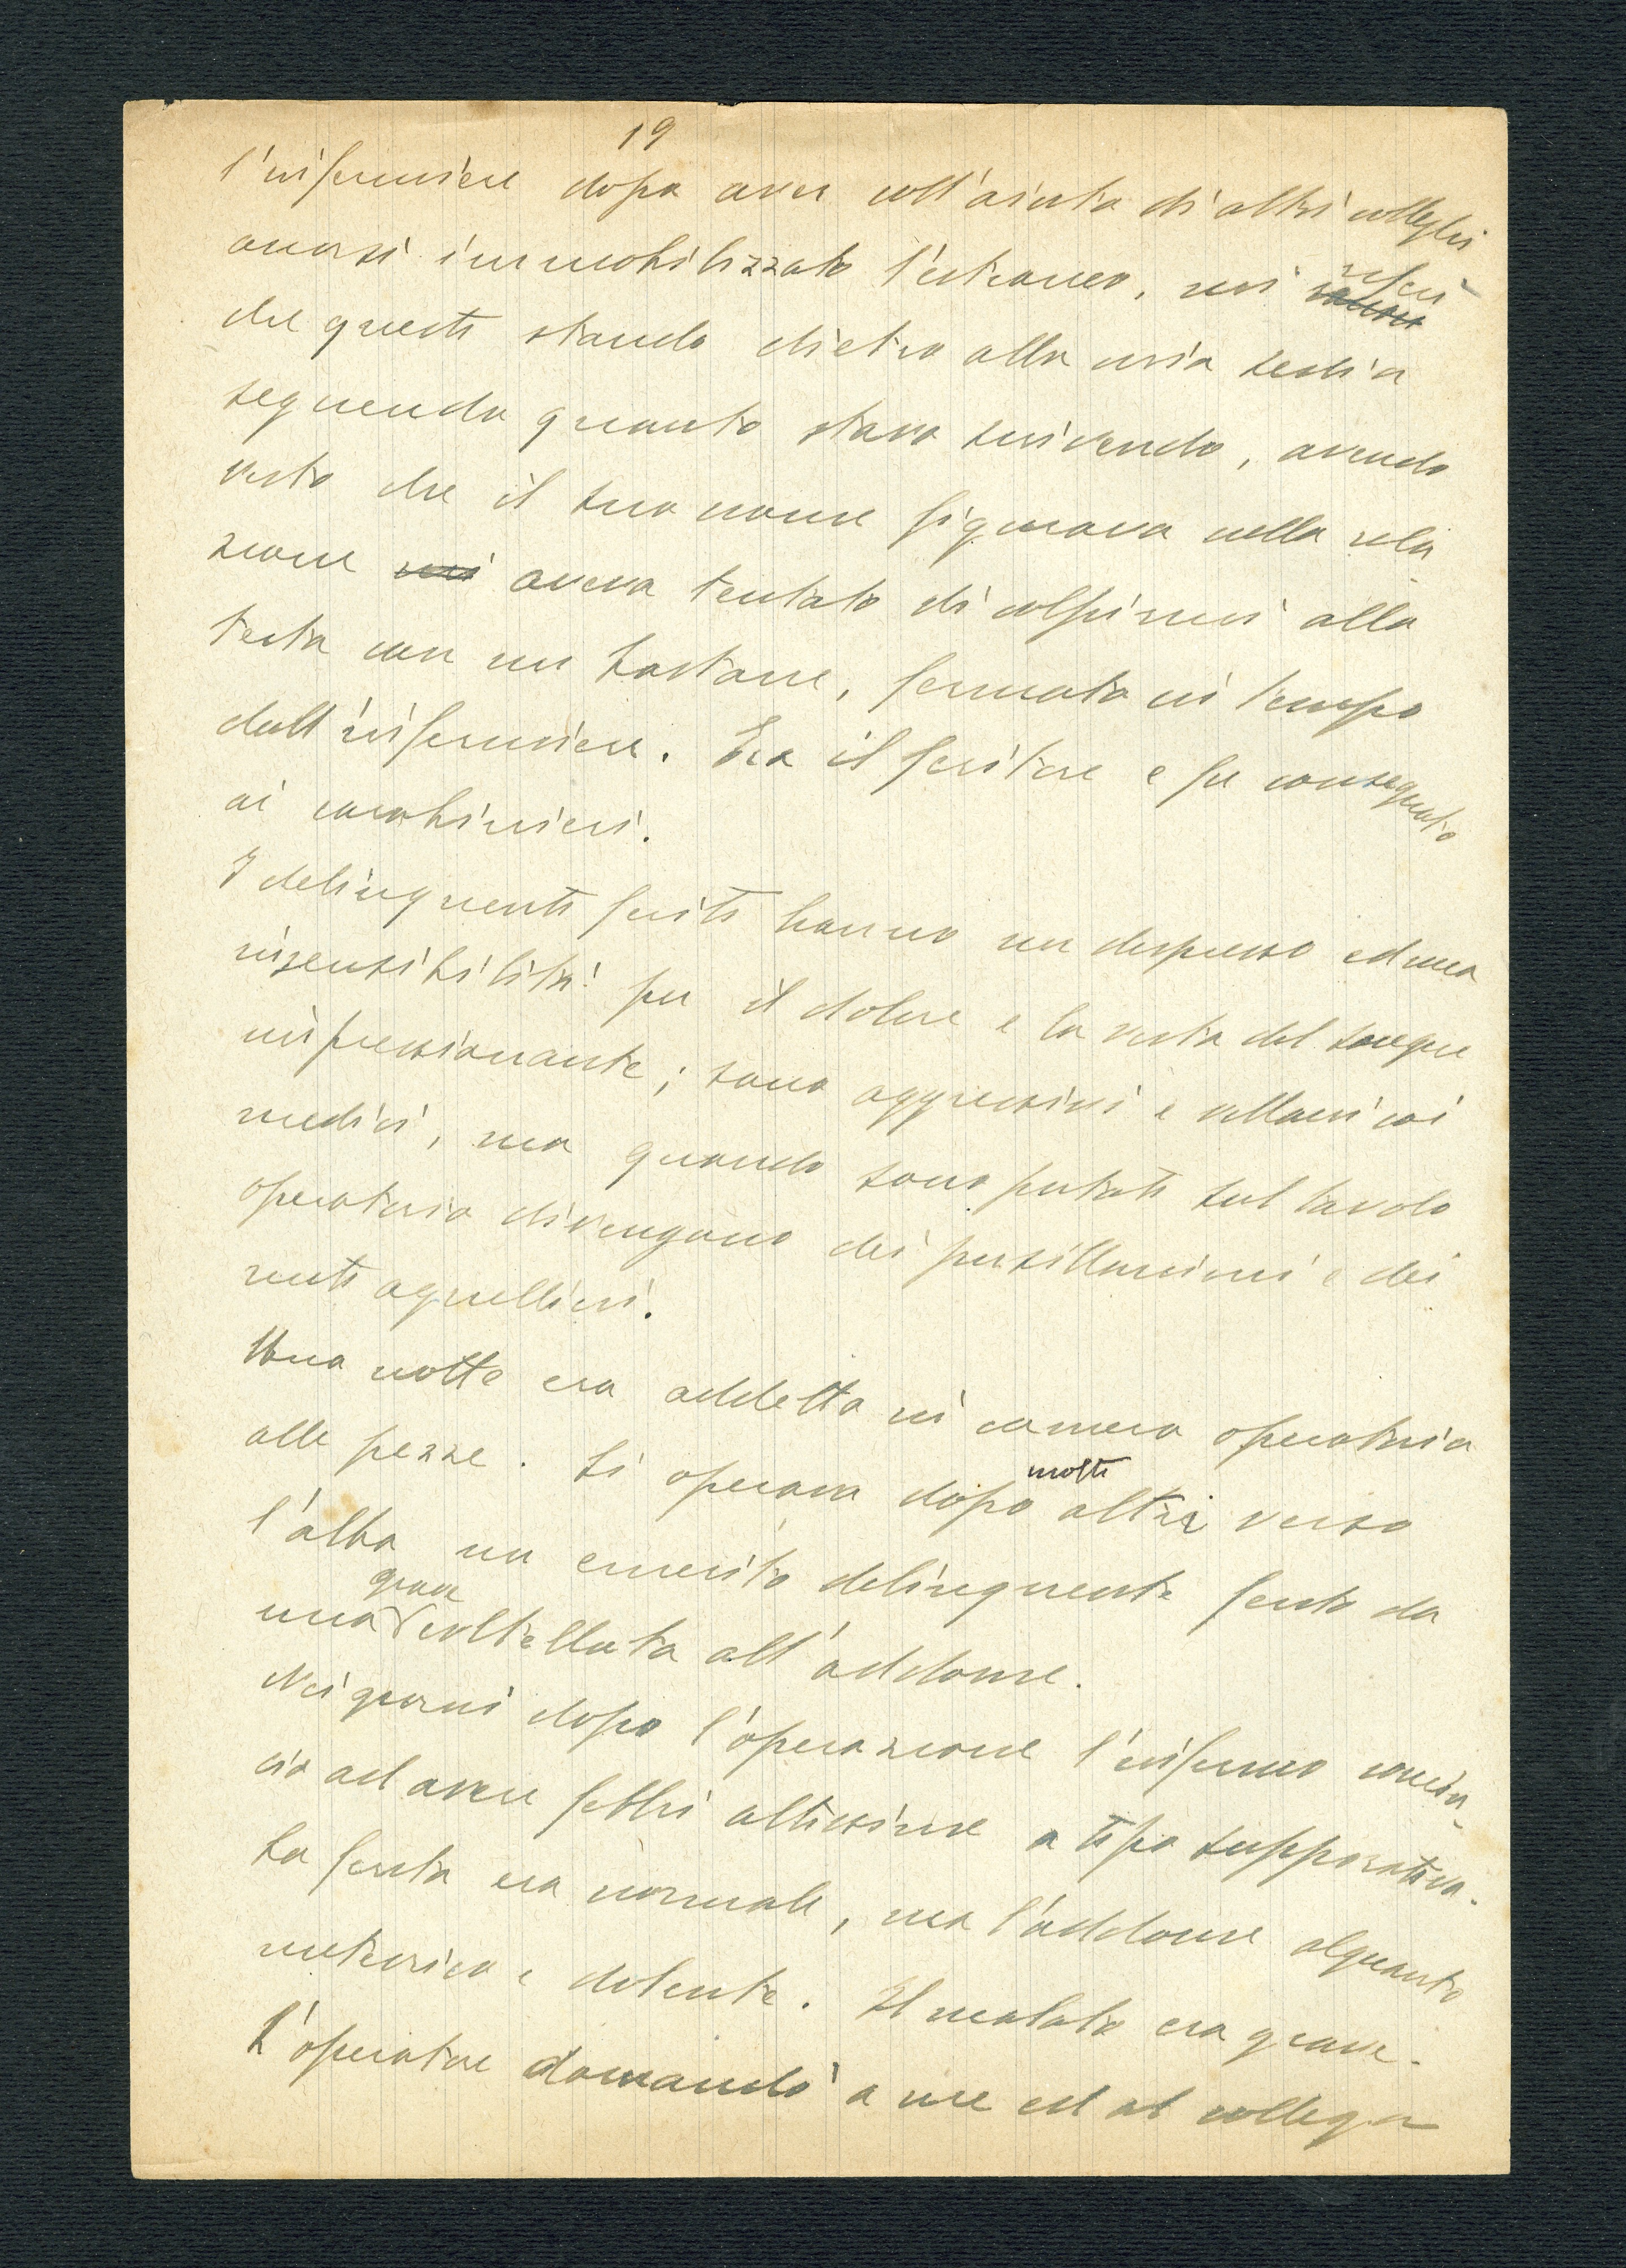 19
l'infermiere dopo aver coll'aiuto di altri colleghi
quasi immobilizzato l'estraneo, mi riferì
che questi stando dietro alla mia sedia
seguendo quanto stavo scrivendo, avendo
visto che il suo nome figurava nella rela-
zione mi aveva tentato di colpirmi alla
testa con un bastone, fermato in tempo
dall'infermiere. Era il feritore e fu consegnato
ai carabinieri.
I delinquenti feriti hanno un disprezzo ed una
insensibilità per il dolore e la vista del sangue
impressionante; sono aggressivi e villani coi
medici, ma quando sono portati sul tavolo
operatorio divengono dei pusillanimi e dei
miti agnellini.
Una notte ero addetto in camera operatoria
alle pezze. Si operava dopo molti altri verso
l'alba un emerito delinquente ferito da
una grave coltellata all'addome.
Nei giorni dopo l'operazione l'infermo comin-
ciò ad avere febbri altissime a tipo suppurativo.
La ferita era normale, ma l'addome alquanto
meteorico e dolente. Il malato era grave.
L'operatore domandò a me ed al collega